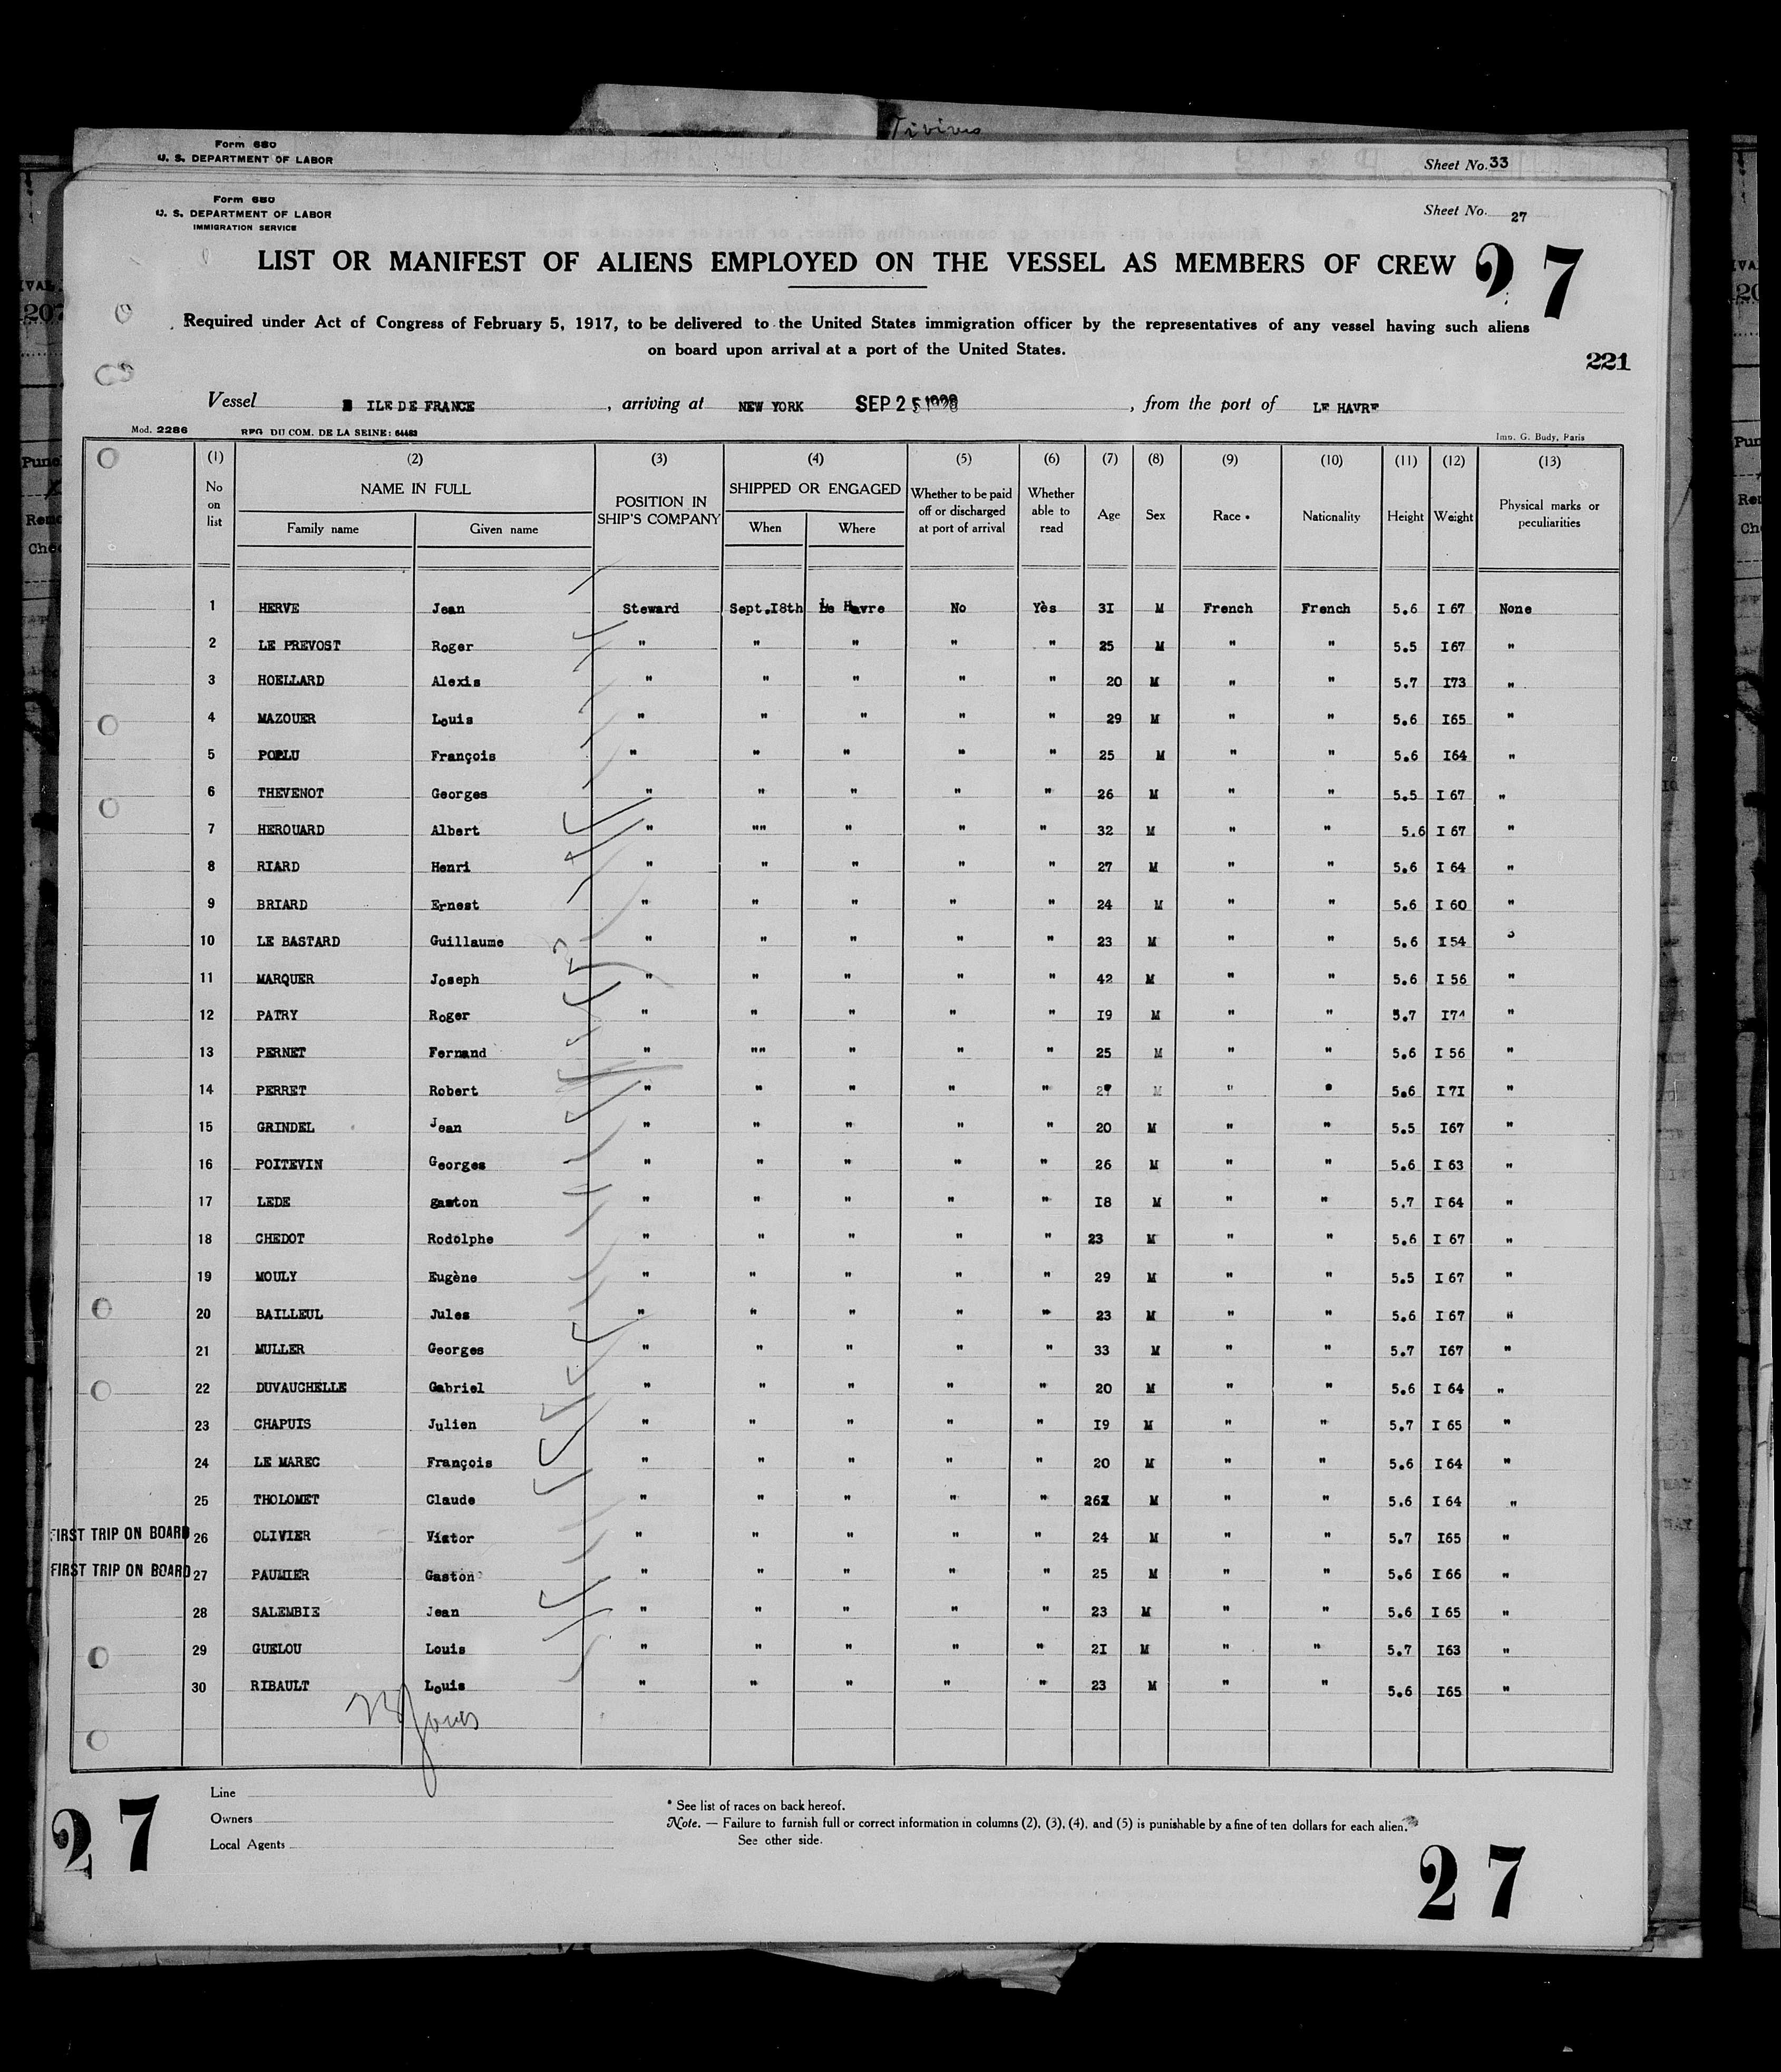 Tivives
Form 680
U. S. DEPARTMENT OF LABOR
Sheet No. 33
Form 680
U. S. DEPARTMENT OF LABOR
IMMIGRATION SERVICE
Sheet No. 27
LIST OR MANIFEST OF ALIENS EMPLOYED ON THE VESSEL AS MEMBERS OF CREW 27
Required under Act of Congress of February 5, 1917, to be delivered to the United States immigration officer by the representatives of any vessel having such aliens
on board upon arrival at a port of the United States.
221
Vessel ILE DE FRANCE , arriving at NEW YORK SEP 25 1928 , from the port of LE HAVRE
Mod. 2286 REG. DU COM. DE LA SEINE: 64483 Imp. G. Budy, Paris
(1) (2) (3) (4) (5) (6) (7) (8) (9) (10) (11) (12) (13)
No on list NAME IN FULL Family name Given name POSITION IN SHIP'S COMPANY SHIPPED OR ENGAGED When Where Whether to be paid off or discharged at port of arrival Whether able to read Age Sex Race * Nationality Height Weight Physical marks or peculiarities
1 HERVE Jean Steward Sept.I8th Le Havre No Yès 3I M French French 5.6 I67 None
2 LE PREVOST Roger " " " " " 25 M " " 5.5 I67 "
3 HOELLARD Alexis " " " " " 20 M " " 5.7 I73 "
4 MAZOUER Louis " " " " " 29 M " " 5.6 I65 "
5 POPLU François " " " " " 25 M " " 5.6 I64 "
6 THEVENOT Georges " " " " " 26 M " " 5.5 I67 "
7 HEROUARD Albert " "" " " " 32 M " " 5.6 I67 "
8 RIARD Henri " " " " " 27 M " " 5.6 I64 "
9 BRIARD Ernest " " " " " 24 M " " 5.6 I60 "
10 LE BASTARD Guillaume " " " " " 23 M " " 5.6 I54 "
11 MARQUER Joseph " " " " " 42 M " " 5.6 I56 "
12 PATRY Roger " " " " " I9 M " " 5.7 "
13 PERNET Fernand " "" " " " 25 M " " 5.6 I56 "
14 PERRET Robert " " " " " M " " 5.6 I7I "
15 GRINDEL Jean " " " " " 20 M " " 5.5 I67 "
16 POITEVIN Georges " " " " " 26 M " " 5.6 I63 "
17 LEDE gaston " " " " " I8 M " " 5.7 I64 "
18 CHEDOT Rodolphe " " " " " 23 M " " 5.6 I67 "
19 MOULY Eugène " " " " " 29 M " " 5.5 I67 "
20 BAILLEUL Jules " " " " " 23 M " " 5.6 I67 "
21 MULLER Georges " " " " " 33 M " " 5.7 I67 "
22 DUVAUCHELLE Gabriel " " " " " 20 M " " 5.6 I64 "
23 CHAPUIS Julien " " " " " I9 M " " 5.7 I65 "
24 LE MAREC François " " " " " 20 M " " 5.6 I64 "
25 THOLOMET Claude " " " " " 26 M " " 5.6 I64 "
FIRST TRIP ON BOARD 26 OLIVIER Viator " " " " " 24 M " " 5.7 I65 "
FIRST TRIP ON BOARD 27 PAUMIER Gaston " " " " " 25 M " " 5.6 I66 "
28 SALEMBIE Jean " " " " " 23 M " " 5.6 I65 "
29 GUELOU Louis " " " " " 2I M " " 5.7 I63 "
30 RIBAULT Louis " " " " " 23 M " " 5.6 I65 "
Line
Owners
Local Agents
* See list of races on back hereof.
Note. — Failure to furnish full or correct information in columns (2), (3), (4), and (5) is punishable by a fine of ten dollars for each alien.
See other side.
27
27